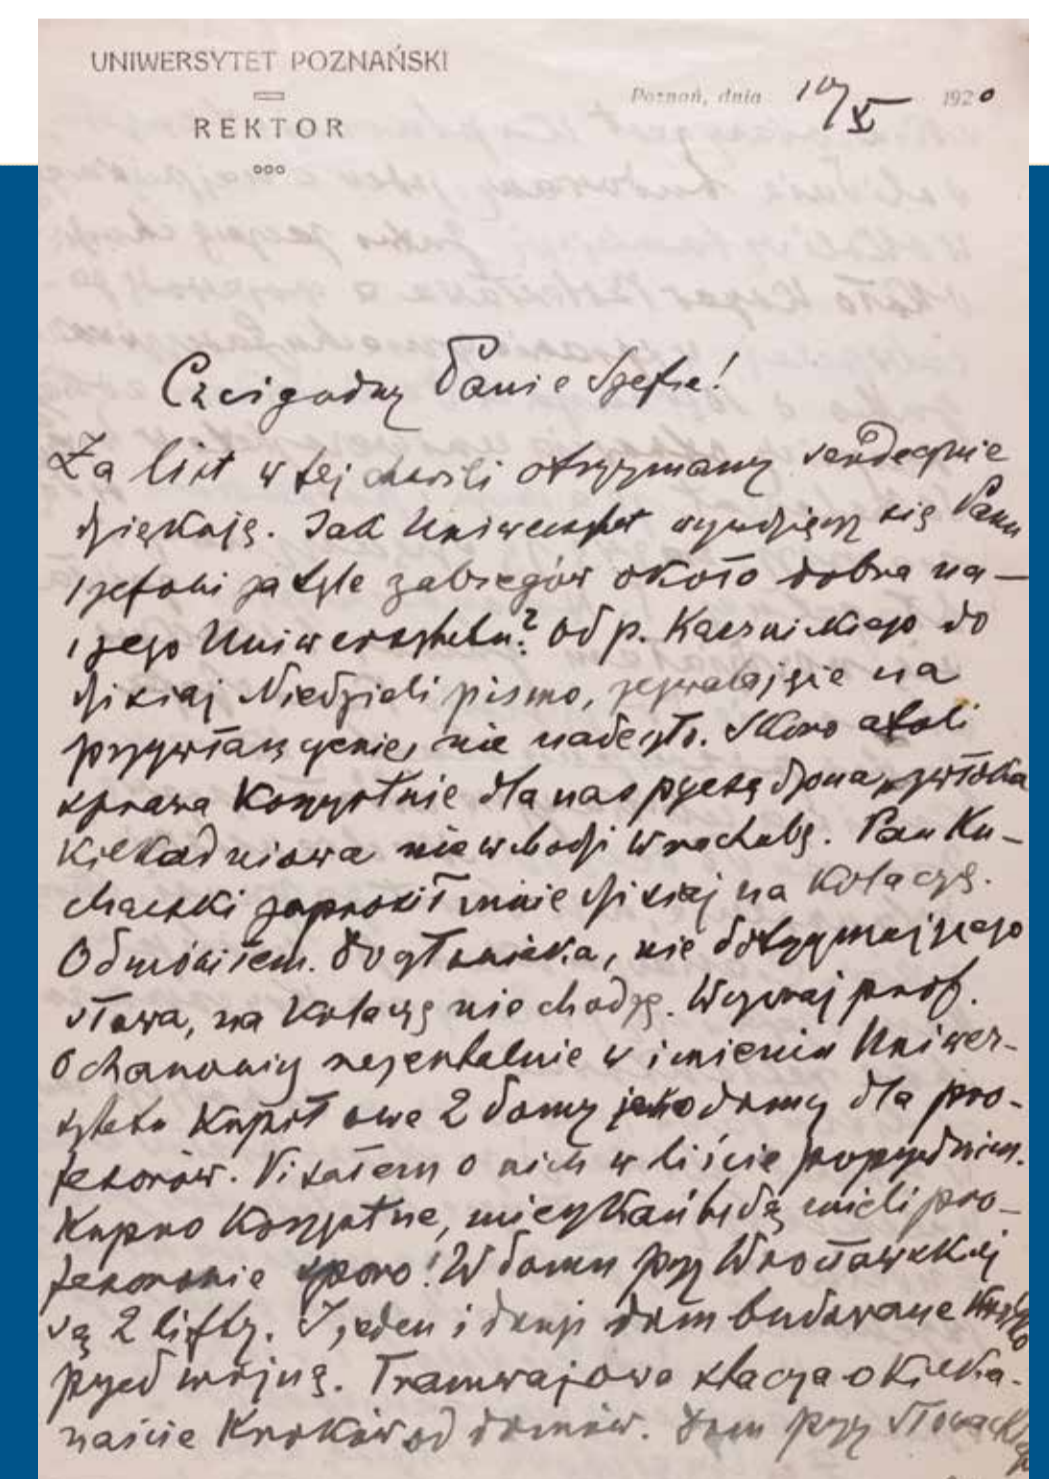 UNIWERSYTET POZNAŃSKI
REKTOR
Poznań, dnia 10/X 1920
Czcigodny Panie Szefie!
Za list w tej chwili otrzymany serdecznie
dziękuję. Jak Uniwersytet wywdzięczy się Panu
szefowi za tyle zabiegów około dobra na-
szego Uniwersytetu? Od p. Kacznickiego do
dzisiaj Niedzieli pismo, zezwalające na
przywłaszczenie, nie nadeszło. Skoro atoli
sprawa korzystnie dla nas przesądzona, zwłoka
kilkadniowa nie wchodzi w rachubę. Pan Ku-
charski zaprosił mnie dzisiaj na kolację.
Odmówiłem. Do człowieka, nie dotrzymującego
słowa, na kolację nie chodzę. Wczoraj prof.
Ochanowicz rejentalnie w imieniu Uniwer-
sytetu kupił owe 2 domy jako domy dla pro-
fesorów. Pisałem o nich w liście poprzednim.
Kupno korzystne, mieszkań będą mieli pro-
fesorowie sporo! W domu przy Wrocławskiej
są 2 lifty. I jeden i drugi dom budowane krótko
przed wojną. Tramwajowa stacja o kilka-
naście kroków od domów. Dom przy